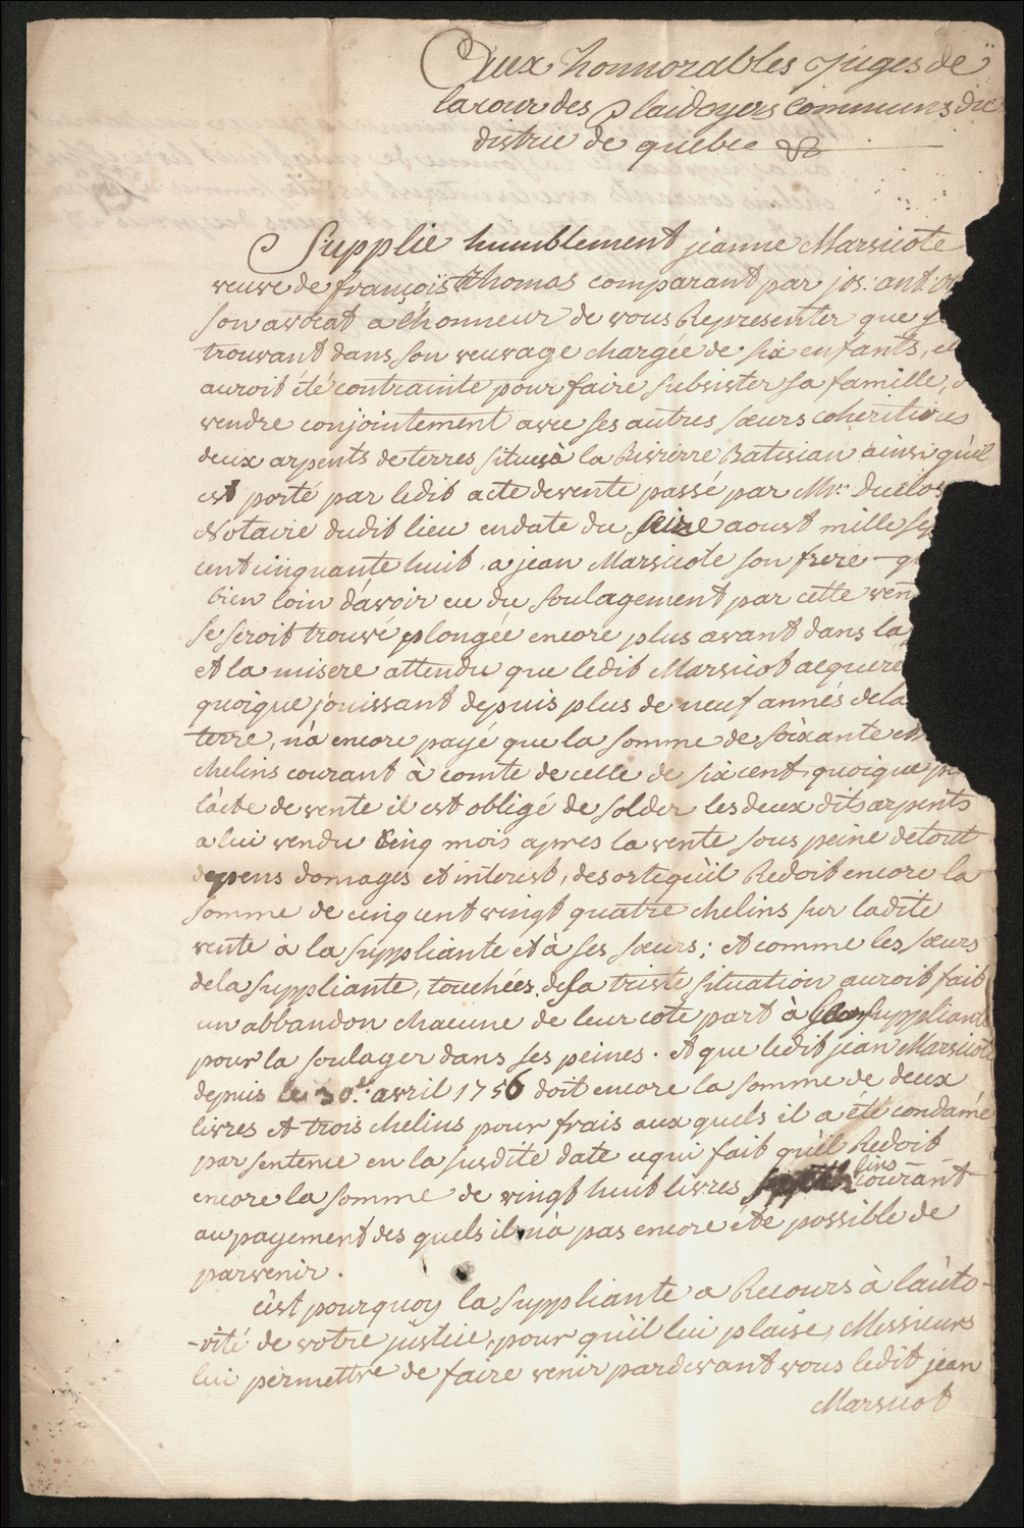 Aux honnorables Juges de
la cour des plaidoyers communs du
district de quebec
Supplie humblement jeanne Marsicote
veuve de françois thomas comparant par jos: ant:
son avocat a l'honneur de vous Representer que
trouvant dans son veuvage chargée de six enfants,
auroit été contrainte pour faire subsister sa famille,
vendre conjointement avec ses autres sœurs coheritieres
deux arpents de terres situés à la Rivierre Batisian ainsi qu'il
est porté par ledit acte de vente passé par Mr. duclos
Notaire dudit lieu en date du seize aoust mille
cent cinquante huit a jean Marsicote son frere
bien loin d'avoir eu du soulagement par cette
se seroit trouvé plongée encore plus avant dans la
et la misere attendu que ledit Marsicot
quoique jouissant depuis plus de neuf annés de la
terre, n'a encore payé que la somme de soixante
chelins courant à comte de celle de six cent quoique
l'acte de vente il est obligé de solder les deux dits arpents
a lui vendu cinq mois apres la vente sous peine de tout
depens domages et interest, desorte qu'il Redoit encore la
somme de cinq cent vingt quatre chelins sur ladite
vente à la suppliante et à ses sœurs; et comme les sœurs
de la suppliante, touchées de sa triste situation auroit fait
un abbandon chacune de leur cote part à la suppliante
pour la soulager dans ses peines. et que ledit jean Marsicote
depuis le 30e. avril 1756 doit encore la somme de deux
livres et trois chelins pour frais aux quels il a été condamé
par sentence en la susdite date ce qui fait qu'il Redoit
encore la somme de vingt huit livres courant
au payement des quels il n'a pas encore été possible de
parvenir.
c'est pourquoy la suppliante a Recours à l'auto-
-rité de votre justice, pour qu'il lui plaise, Messieurs
lui permettre de faire venir pardevant vous ledit jean
Marsicot